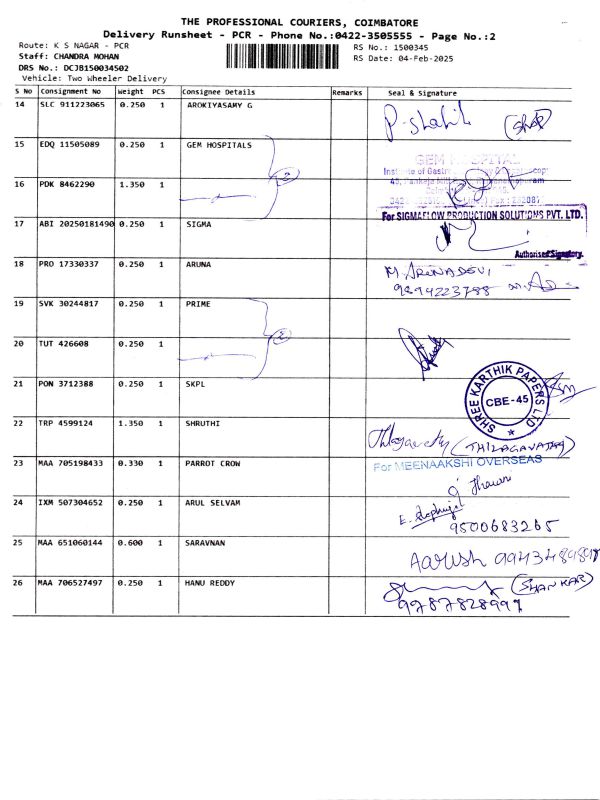 THE PROFESSIONAL COURIERS, COIMBATORE
Delivery Runsheet - PCR - Phone No.:0422-3505555 - Page No.:2
Route: K S NAGAR - PCR
Staff: CHANDRA MOHAN
DRS No.: DCJB150034502
Vehicle: Two Wheeler Delivery
RS No.: 1500345
RS Date: 04-Feb-2025
S No Consignment No Weight PCS Consignee Details Remarks Seal & Signature
14 SLC 911223065 0.250 1 AROKIYASAMY G
15 EDQ 11505089 0.250 1 GEM HOSPITALS
GEM HOSPITAL
16 PDK 8462290 1.350 1
2
For SIGMAFLOW PRODUCTION SOLUTIONS PVT. LTD.
17 ABI 20250181490 0.250 1 SIGMA
Authorised Signatory.
18 PRO 17330337 0.250 1 ARUNA
M. ARUNADEVI
9894223788
19 SVK 30244817 0.250 1 PRIME
20 TUT 426608 0.250 1
2
21 PON 3712388 0.250 1 SKPL
SHREE KARTHIK PAPERS LTD
CBE-45
22 TRP 4599124 1.350 1 SHRUTHI
Thilagavathy (THILAGAVATHY)
23 MAA 705198433 0.330 1 PARROT CROW
For MEENAAKSHI OVERSEAS
24 IXM 507304652 0.250 1 ARUL SELVAM
9500683265
25 MAA 651060144 0.600 1 SARAVNAN
Aarush
26 MAA 706527497 0.250 1 HANU REDDY
(SHANKAR)
9787828997